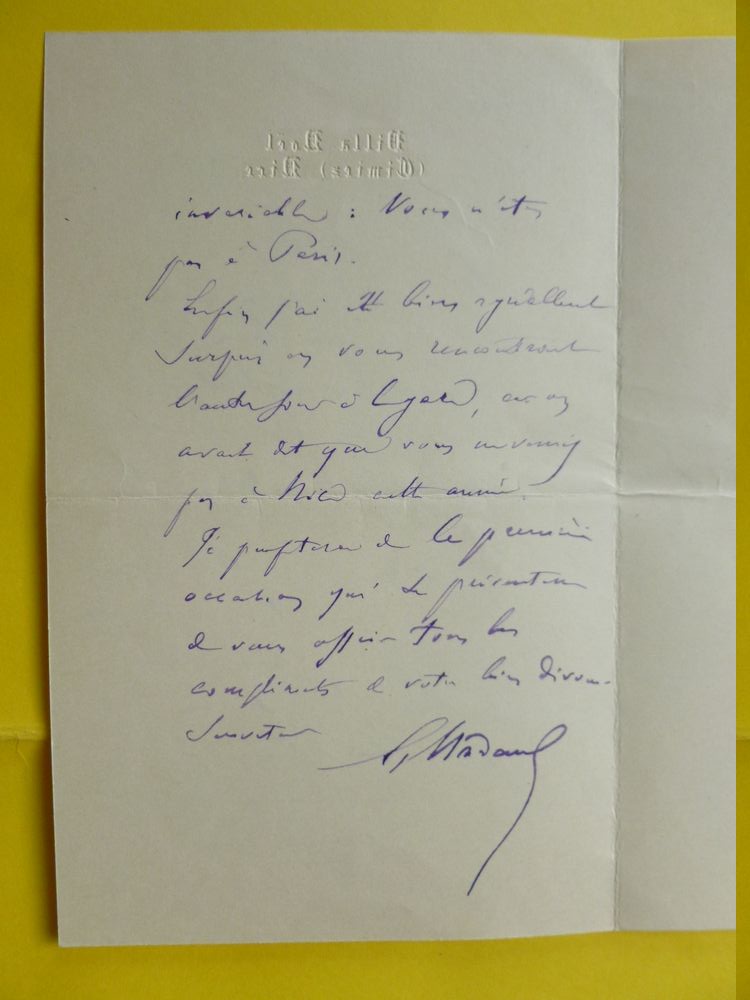 Villa Noël
(Cimiez) Nice
invariable : Vous n'êtes
pas à Paris.
Enfin j'ai été bien agréablement
surpris en vous rencontrant
l'autre jour à Lyon, on
avait dit que vous ne veniez
pas à Nice cette année.
Je profiterai de la première
occasion qui se présentera
de vous offrir tous les
compliments de votre bien dévoué
serviteur